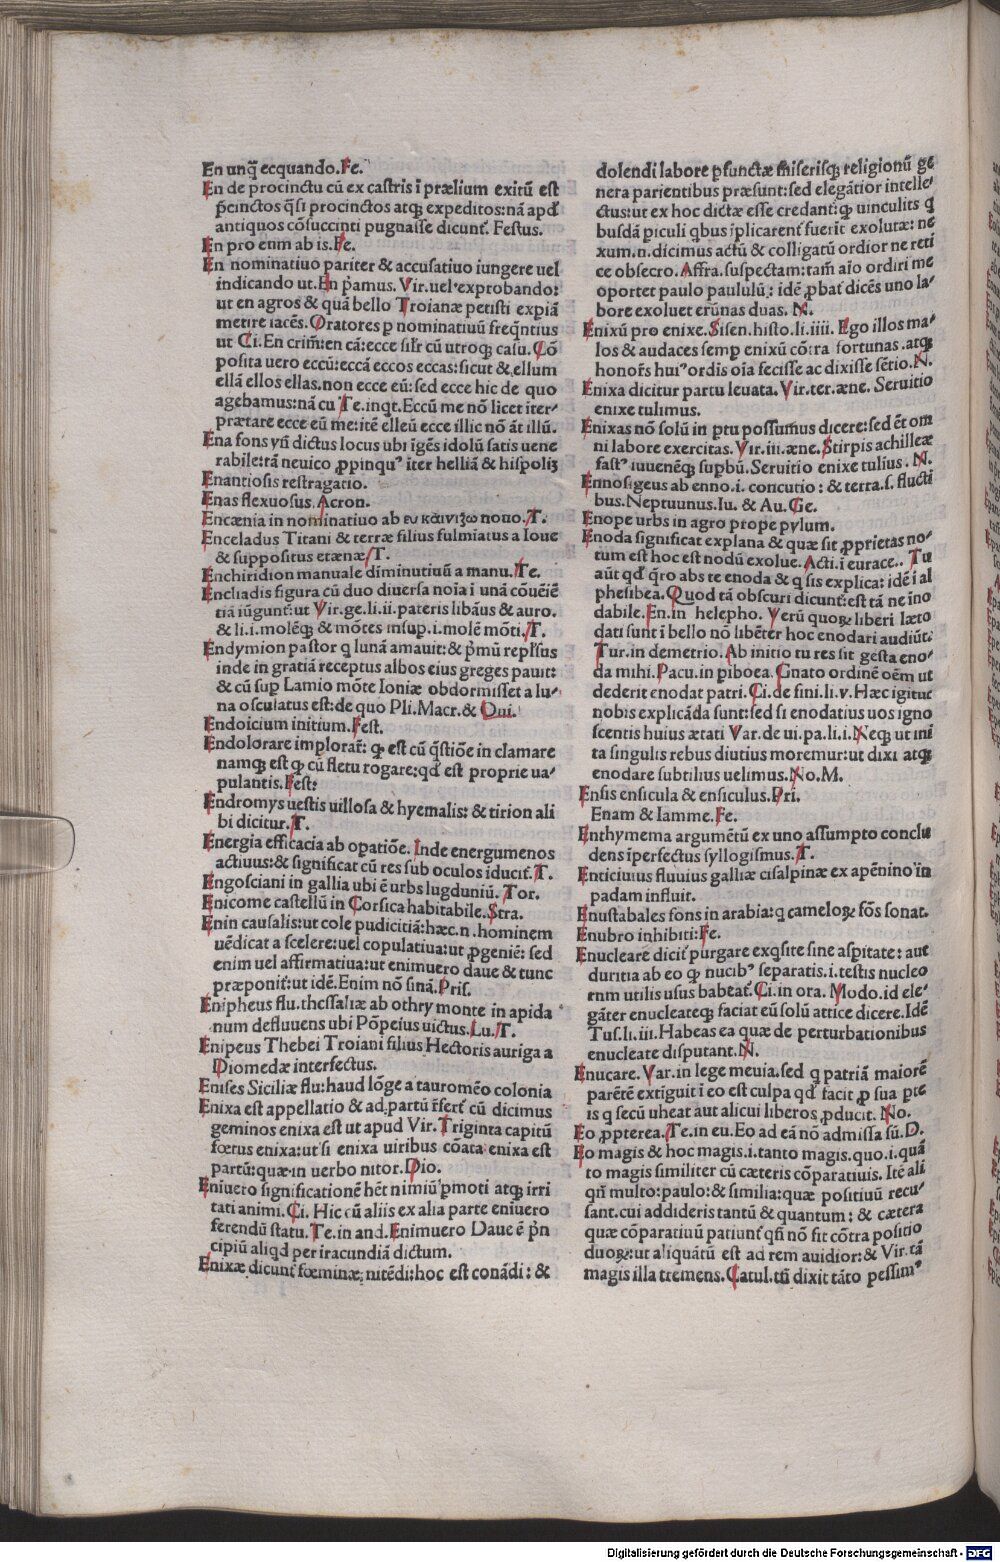 En unq̃ ecquando.Fe.
En de procinctu cũ ex castris ĩ prælium exitũ est
p̃cinctos q̃si procinctos atqꝫ expeditos:nã apd̃
antiquos cõsuccinti pugnasse dicunt̃. Festus.
En pro eum ab is.Fe.
En nominatiuo pariter & accusatiuo iungere uel
indicando ut.En p̃amus. Vir.uel exprobando:
ut en agros & quã bello Troianæ petisti expiã
metire iacẽs.Oratores ꝑ nominatiuũ freq̃ntius
ut Ci.En crim̃:en cã:ecce sil̃r cũ utroqꝫ casu.Cõ
posita uero eccũ:eccã eccos eccas:sicut & ellum
ellã ellos ellas.non ecce eũ:sed ecce hic de quo
agebamus:nã cu Te.inq̃t.Eccũ me nõ licet iter
prætare ecce eũ me:itẽ elleũ ecce illic nõ ãt illũ.
Ena fons yñ dictus locus ubi ĩgẽs idolũ satis uene
rabile:trã neuico ꝓpinquꝰ iter helliã & hispoliꝫ
Enantiosis restragatio.
Enas flexuosus.Acron.
Encænia in nominatiuo ab εν καινιζω nouo.T.
Enceladus Titani & terræ filius fulmiatus a Ioue
& suppositus etænæ/T.
Enchiridion manuale dĩminutiuũ a manu.Te.
Encliadis figura cũ duo diuersa noĩa ĩ unã cõuẽiẽ
tiã iũgunt̃:ut Vir.ge.li.ii.pateris libãus & auro.
& li.i.molẽqꝫ & mõtes insup.i.molẽ mõti.T.
Endymion pastor q lunã amauit:& p̃mũ repl̃sus
inde in gratiã receptus albos eius greges pauit:
& cũ suꝑ Lamio mõte Ioniæ obdormisset a lu
na osculatus est:de quo Pli.Macr.& Oui.
Endoicium initium.Fest.
Endolorare implorar̃: qꝫ est cũ q̃stiõe in clamare
namqꝫ est qꝫ cũ fletu rogare:qd̃ est proprie ua
pulantis.Fest:
Endromys uestis uillosa & hyemalis: & tirion ali
bi dicitur.T.
Energia efficacia ab opatiõe. Inde energumenos
actiuus:& significat cũ res sub oculos iducit̃.T.
Engosciani in gallia ubi ẽ urbs lugduniũ. Tor.
Enicome castellũ in Corsica habitabile.Stra.
Enin causalis:ut cole pudicitiã:hæc.n.hominem
uẽdicat a scelere:uel copulatiua:ut ꝓgeniẽ: sed
enim uel affirmatiua:ut enimuero daue & tunc
præponit̃:ut idẽ.Enim nõ sinã.Pris.
Enipheus flu.thessaliæ ab othry monte in apida
num defluuens ubi Põpeius uictus.Lu.T.
Enipeus Thebei Troiani filius Hectoris auriga a
Diomedæ interfectus.
Enises Siciliæ flu:haud lõge a tauromẽo colonia
Enixa est appellatio & ad partũ r̃fert̃ cũ dicimus
geminos enixa est ut apud Vir.Triginta capitũ
fœtus enixa:ut si enixa uiribus cõata enixa est
partũ:quæ in uerbo nitor.Dio.
Eniuero significationẽ hẽt nimiũ ꝓmoti atqꝫ irri
tati animi.Ci. Hic cũ aliis ex alia parte eniuero
ferendũ statu.Te.in and.Enimuero Daue ẽ p̃n
cipiũ aliqd per iracundiã dictum.
Enixæ dicunt̃ fœminæ:nitẽdi:hoc est conãdi: &
dolendi labore ꝑfunctæ miserisqꝫ religionũ ge
nera parientibus præsunt:sed elegãtior intelle
ctus:ut ex hoc dictæ esse credant̃:qꝫ uinculis q̃
busdã piculi qbus ĩplicarent̃ fuerit exolutæ: ne
xum.n.dicimus actũ & colligatũ ordior ne reti
ce obsecro.Affra.suspectam:tam̃ aio ordiri me
oportet paulo paululũ: idẽ ꝓbat̃ dicẽs uno la
bore exoluet erũnas duas. N.
Enixũ pro enixe.Sisen.histo.li.iiii. Ego illos ma
los & audaces semꝑ enixũ cõtra fortunas .atqꝫ
honor̃s huiꝰordis oĩa fecisse ac dixisse sẽtio.N.
Enixa dicitur partu leuata. Vir.ter.æne. Seruitio
enixe tulimus.
Enixas nõ solũ in ptu possumus dicere:sed ẽt om
ni labore exercitas. Vir.iii.æne.Stirpis achilleæ
fastꝰ iuuenẽqꝫ supbũ.Seruitio enixe tulius. N.
Ennosigeus ab enno.i. concutio: & terra.s. flucti
bus.Neptuunus.Iu. & Au.Ge.
Enope urbs in agro prope pylum.
Enoda significat explana & quæ sit ꝓprietas no
tum est hoc est nodũ exolue. Acti.ĩ eurace.. Tu
aũt qd̃ q̃ro abs te enoda & q sis explica: idẽ ĩ al
phesibea.Quod tã obscuri dicunt̃:est tã ne ĩno
dabile.En.in helepho. Verũ quoqꝫ liberi læto
dati sunt ĩ bello nõ libẽter hoc enodari audiũt̃.
Tur.in demetrio.Ab initio tu res sit gesta eno
da mihi.Pacu.in piboea.Gnato ordinẽ oẽm ut
dederit enodat patri.Ci.de fini.li.v.Hæc igitur
nobis explicãda sunt:sed si enodatius uos igno
scentis huius ætati Var.de ui.pa.li.i.Neqꝫ ut inĩ
ta singulis rebus diutius moremur:ut dixi atqꝫ
enodare subtilius uelimus.No.M.
Ensis ensicula & ensiculus.Pri.
Enam & Iamme.Fe.
Enthymema argumẽtũ ex uno assumpto conclu
dens ĩperfectus syllogismus.T.
Enticiuius fluuius galliæ cisalpinæ ex apẽnino in
padam influit.
Enustabales fons in arabia:q cameloꝝ fõs sonat.
Enubro inhibiti:Fe.
Enucleare dicit̃ purgare exq̃site sine aspitate: aut
duritia ab eo qꝫ nucibꝰ separatis.i.testis nucleo
rnm utilis usus habeat̃.Ci.in ora. Modo.id ele
gãter enucleateqꝫ faciat eũ solũ attice dicere.Idẽ
Tus.li.iii.Habeas ea quæ de perturbationibus
enucleate disputant.N.
Enucare.Var.in lege meuia.sed q patriã maiorẽ
parẽtẽ extĩguit ĩ eo est culpa qd̃ facit ꝓ sua pte
is q secũ uheat aut alicui liberos ꝓducit. No.
Eo ꝓpterea.Te.in eu.Eo ad eã nõ admissa sũ.D.
Eo magis & hoc magis.i.tanto magis.quo.i.quã
to magis similiter cũ cæteris cõparatiuis. Itẽ ali
qñ multo:paulo:& similia:quæ positiuũ recu
sant.cui addideris tantũ & quantum: & cætera
quæ cõparatiuũ patiunt̃ qñ nõ fit cõtra positio
duoꝝ:ut aliquãtũ est ad rem auidior:& Vir.tã
magis illa tremens.Catul.tũ dixit tãto pessimꝰ
Digitalisierung gefördert durch die Deutsche Forschungsgemeinschaft - DFG